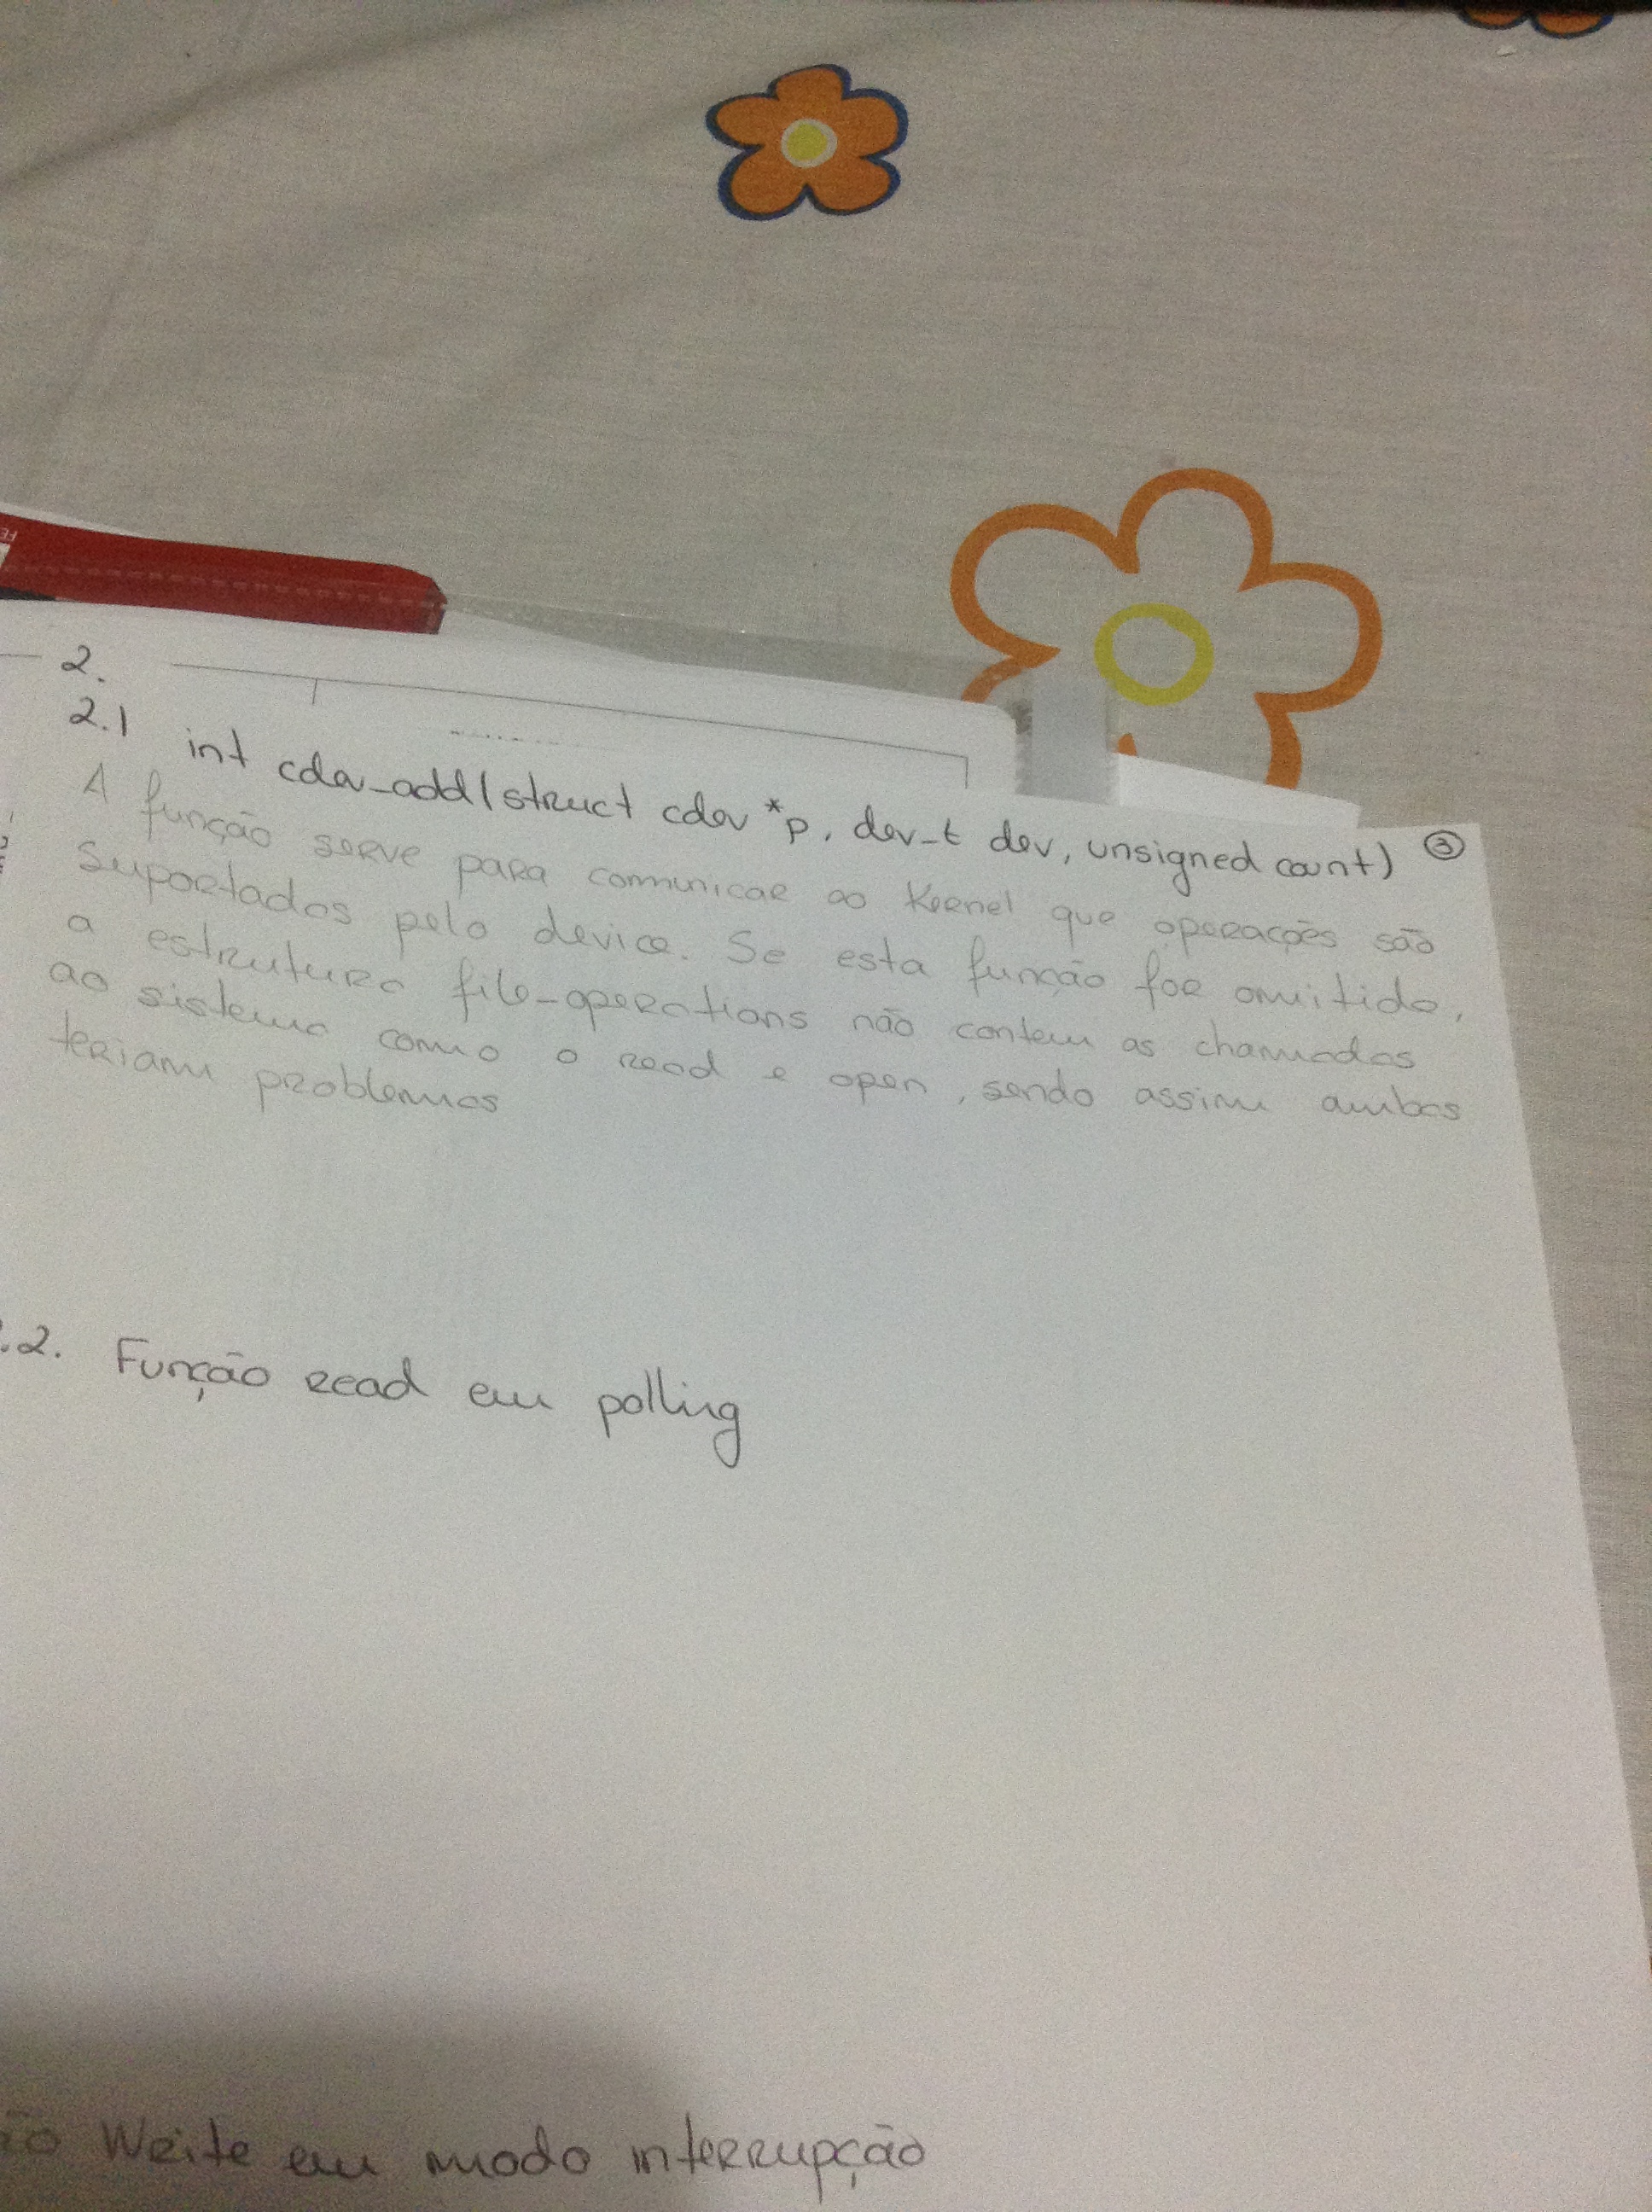 2.
2.1 int cdev_add(struct cdev *p, dev_t dev, unsigned count) ③
A função serve para comunicar ao Kernel que operações são
suportados pelo device. Se esta função for omitida,
a estrutura file_operations não contem as chamadas
ao sistema como o read e open, sendo assim ambas
teriam problemas
.2. Função read em polling
ão Write em modo interrupção